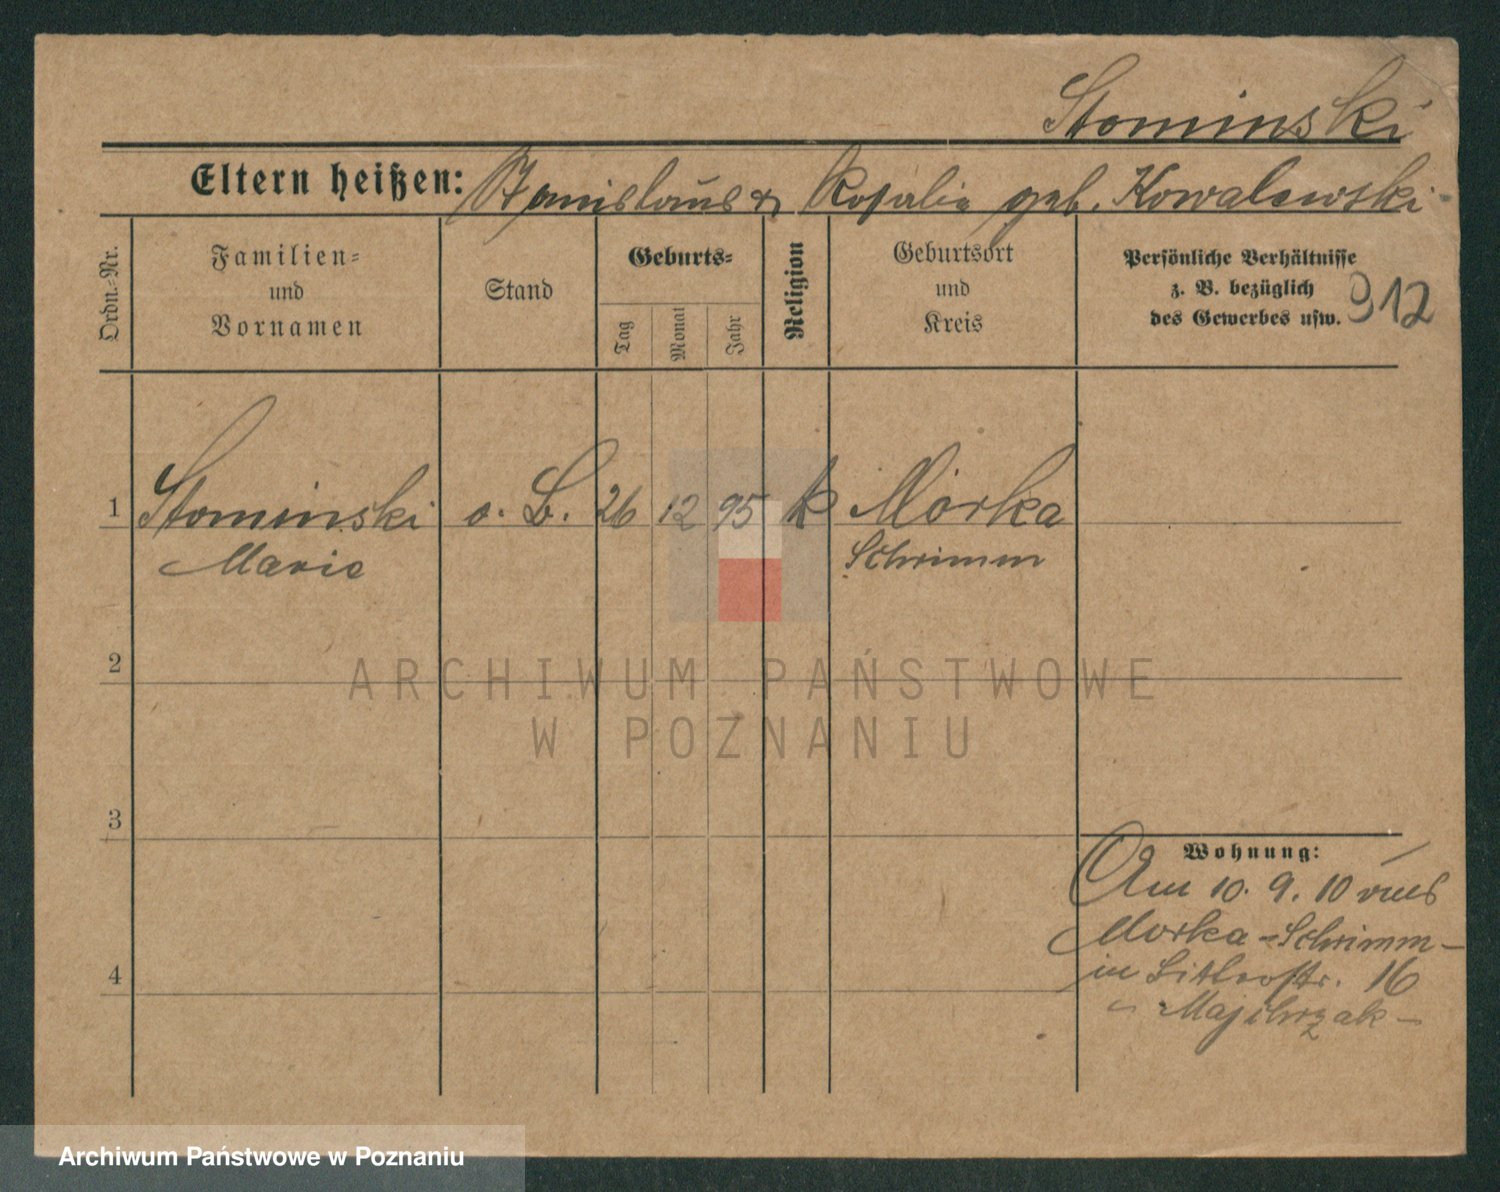 Stominski
Eltern heißen: Stanislaus & Rosalie geb. Kowalewski
Ordn.-Nr.
Familien-
und
Vornamen
Stand
Geburts-
Tag
Monat
Jahr
Religion
Geburtsort
und
Kreis
Persönliche Verhältnisse
z. B. bezüglich
des Gewerbes usw.
912
1 Stominski o. B. 26 12 95 k Mórka
Marie Schrimm
2
3
4
Wohnung:
Am 10. 9. 10 aus
Morka - Schrimm -
in 16
Majchrzak -
ARCHIWUM PAŃSTWOWE
W POZNANIU
Archiwum Państwowe w Poznaniu